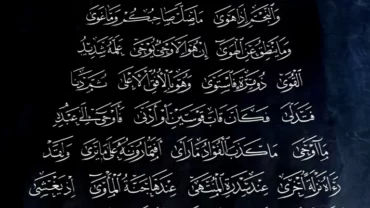 والنجم إذا هوى ما ضل صاحبكم وما غوى
وما ينطق عن الهوى إن هو إلا وحي يوحى علمه شديد
القوى ذو مرة فاستوى وهو بالأفق الأعلى ثم دنا
فتدلى فكان قاب قوسين أو أدنى فأوحى إلى عبده
ما أوحى ما كذب الفؤاد ما رأى أفتمارونه على ما يرى ولقد
رءاه نزلة أخرى عند سدرة المنتهى عندها جنة المأوى إذ يغشى